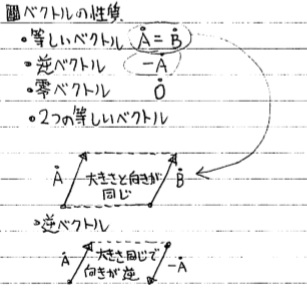 回ベクトルの性質
•等しいベクトル Ȧ = Ḃ
•逆ベクトル -Ȧ
•零ベクトル Ȯ
•2つの等しいベクトル
Ȧ 大きさと向きが同じ Ḃ
•逆ベクトル
Ȧ 大きさ同じで向きが逆 -Ȧ